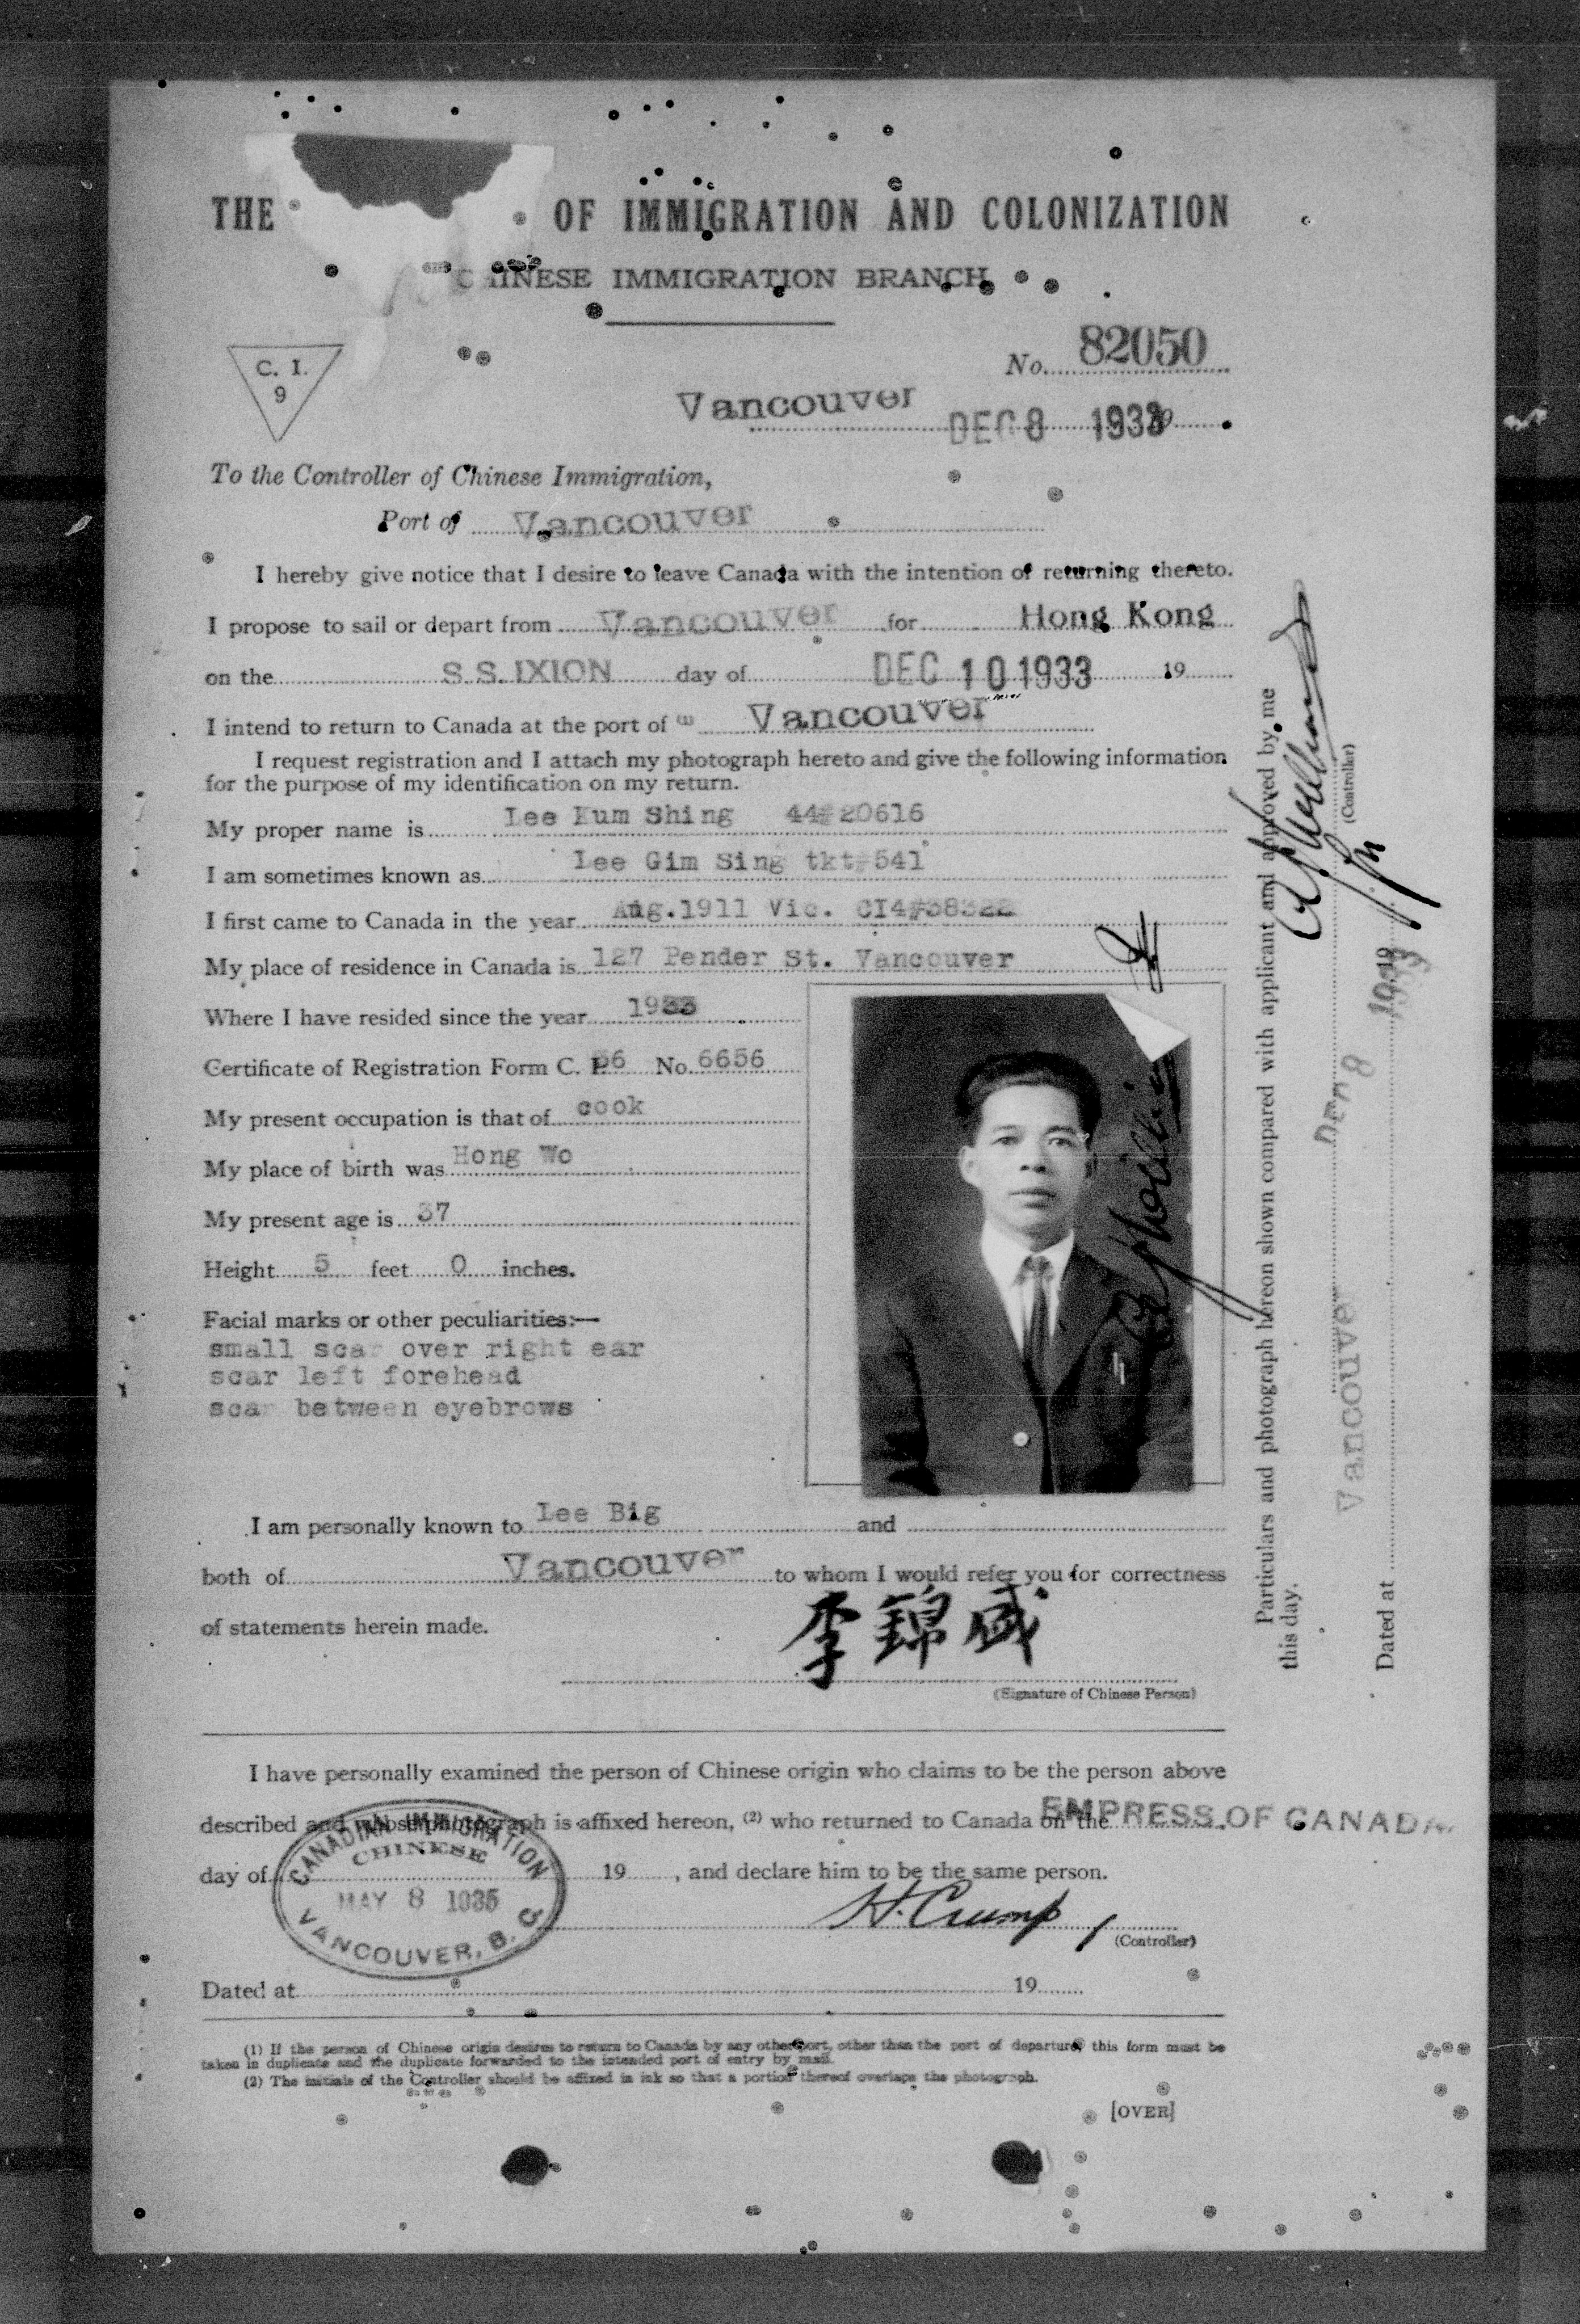 THE OF IMMIGRATION AND COLONIZATION
CHINESE IMMIGRATION BRANCH
C. I.
9
No. 82050
Vancouver DEC 8 1933
To the Controller of Chinese Immigration,
Port of Vancouver
I hereby give notice that I desire to leave Canada with the intention of returning thereto.
I propose to sail or depart from Vancouver for Hong Kong
on the S.S. IXION day of DEC 10 1933 19
I intend to return to Canada at the port of (1) Vancouver
I request registration and I attach my photograph hereto and give the following information
for the purpose of my identification on my return.
My proper name is Lee Kum Shing 44#20616
I am sometimes known as Lee Gim Sing tkt#541
I first came to Canada in the year Aug.1911 Vic. CI4#38322
My place of residence in Canada is 127 Pender St. Vancouver
Where I have resided since the year 1933
Certificate of Registration Form C. I. 36 No. 6656
My present occupation is that of cook
My place of birth was Hong Wo
My present age is 37
Height 5 feet 0 inches.
Facial marks or other peculiarities:—
small scar over right ear
scar left forehead
scar between eyebrows
I am personally known to Lee Big and
both of Vancouver to whom I would refer you for correctness
of statements herein made.
李錦成
(Signature of Chinese Person)
I have personally examined the person of Chinese origin who claims to be the person above
described and whose photograph is affixed hereon, (2) who returned to Canada on the EMPRESS OF CANADA
day of 19 , and declare him to be the same person.
CANADIAN IMMIGRATION
CHINESE
MAY 8 1935
VANCOUVER, B. C.
H. Crump
(Controller)
Dated at 19
(1) If the person of Chinese origin desires to return to Canada by any other port, other than the port of departure, this form must be
taken in duplicate and the duplicate forwarded to the intended port of entry by mail.
(2) The initials of the Controller should be affixed in ink so that a portion thereof overlaps the photograph.
[OVER]
Particulars and photograph hereon shown compared with applicant and approved by me
this day.
(Controller)
Dated at Vancouver DEC 8 1933 19